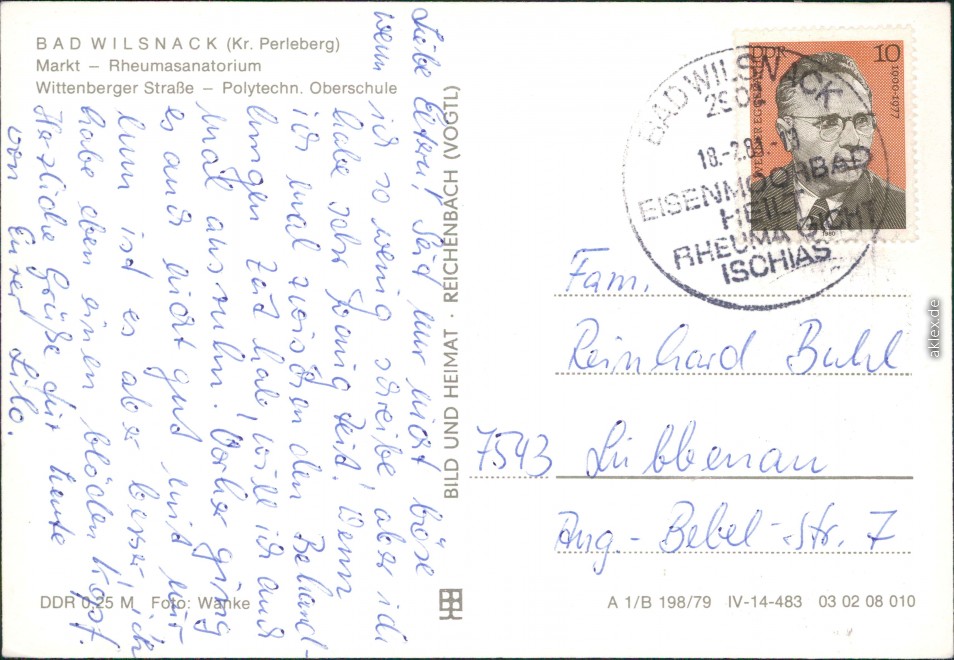 BAD WILSNACK (Kr. Perleberg)
Markt – Rheumasanatorium
Wittenberger Straße – Polytechn. Oberschule
Liebe Eltern! Seid nur nicht böse
wenn ich so wenig schreibe, aber ich
habe sehr wenig Zeit. Wenn
ich mal zwischen den Behand-
lungen Zeit hab, will ich auch
mal ausruhn. Vorher ging
es auch nicht gut mit mir
nun ist es aber besser ich
habe eben einen blöden Kopf.
Herzliche Grüße für heute
von Eurer Lilo.
BILD UND HEIMAT · REICHENBACH (VOGTL)
DDR 0,25 M Foto: Wanke
DDR 10
1900-1977
WERNER EGGERATH
1980
BAD WILSNACK
18.-2.81.-
EISENMOORBAD
HEILT
RHEUMA GICHT
ISCHIAS
Fam.
Reinhard Buhl
7543 Lübbenau
Aug.-Bebel-Str. 7
A 1/B 198/79 IV-14-483 03 02 08 010
aklex.de